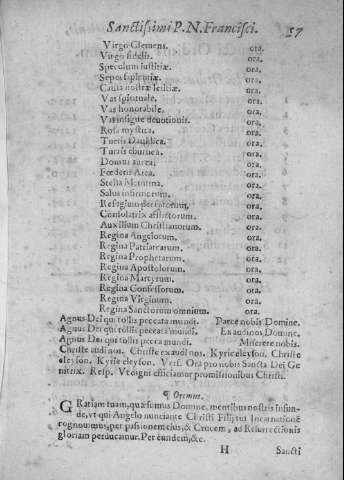 Sanctissimi P. N. Francisci. 57
Virgo Clemens. ora.
Virgo fidelis. ora.
Speculum iustitiæ. ora.
Sedes sapientiæ. ora.
Causa nostræ lætitiæ. ora.
Vas spirituale. ora.
Vas honorabile. ora.
Vas insigne deuotionis. ora.
Rosa mystica. ora.
Turris Dauidica. ora.
Turris eburnea. ora.
Domus aurea. ora.
Fœderis Arca. ora.
Stella Matutina. ora.
Salus infirmorum. ora.
Refugium peccatorum. ora.
Consolatrix afflictorum. ora.
Auxilium Christianorum. ora.
Regina Angelorum. ora.
Regina Patriarcarum. ora.
Regina Prophetarum. ora.
Regina Apostolorum. ora.
Regina Martyrum. ora.
Regina Confessorum. ora.
Regina Virginum. ora.
Regina Sanctorum omnium. ora.
Agnus Dei qui tollis peccata mundi. Parce nobis Domine.
Agnus Dei qui tollis peccata mundi. Exaudi nos Domine.
Agnus Dei qui tollis peccata mundi. Miserere nobis.
Christe audi nos. Christe exaudi nos. Kyrie eleyson. Christe
eleyson. Kyrie eleyson. Vers. Ora pro nobis Sancta Dei Ge
nitrix. Resp. Vt digni efficiamur promissionibus Christi.
¶ Oremus.
GRatiam tuam, quæsumus Domine, mentibus nostris infun-
de, vt qui Angelo nunciante Christi Filij tui Incarnationē
cognouimus, per passionem eius, & Crucem, ad Resurrectionis
gloriam perducamur. Per eundem, &c.
H Sancti